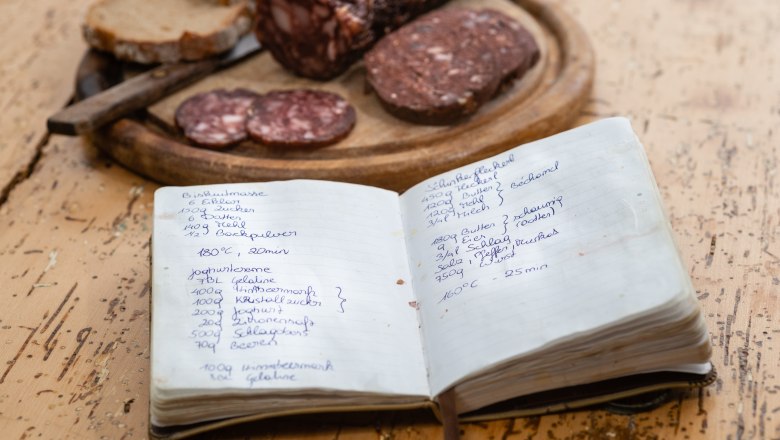 Biskuitmasse
6 Eiklar
150g Zucker
6 Dotter
140g Mehl
1/2 Backpulver
180°C, 20min
Joghurtcreme
7 Bl. Gelatine
400g Himbeermark
100g Kristallzucker
200g Joghurt
20g Zitronensaft
500g Schlagobers
70g Beeren
100g Himbeermark
Gelatine
Schinkenfleckerl
450g Fleckerl
120g Butter
120g Mehl } Béchamel
3/4l Milch
180g Butter } schaumig
9 Eier (Dotter)
3/4l Schlag
Salz, Pfeffer, Muskat
750g Wurst
160°C - 25min